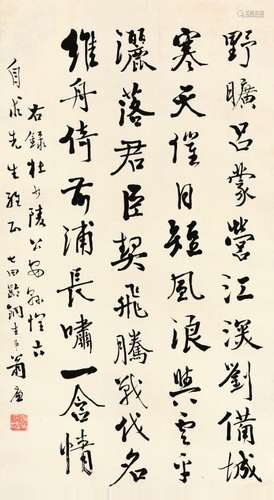 野曠呂蒙營江深劉備城
寒天催日短風浪與雲平
灑落君臣契飛騰戰代名
維舟倚前浦長嘯一含情
右錄杜少陵公安縣懷古
自求先生雅正